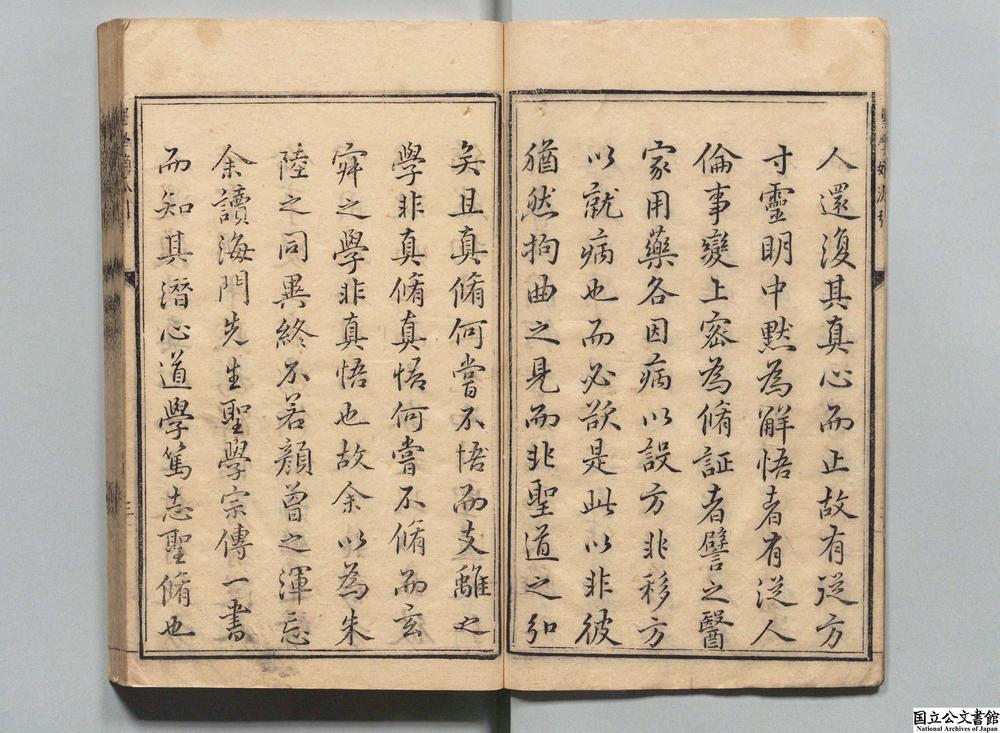 人還復其真心而止故有從方
寸靈明中黙為解悟者有從人
倫事變上宻為脩証者譬之醫
家用藥各因病以設方非移方
以就病也而必欲是此以非彼
猶然拘曲之見而非聖道之弘
矣且真脩何嘗不悟而支離之
學非真脩真悟何嘗不脩而玄
㝠之學非真悟也故余以為朱
陸之同異終不若顔曾之渾忘
余讀海門先生聖學宗傳一書
而知其潛心道學篤志聖脩也
三
国立公文書館
National Archives of Japan